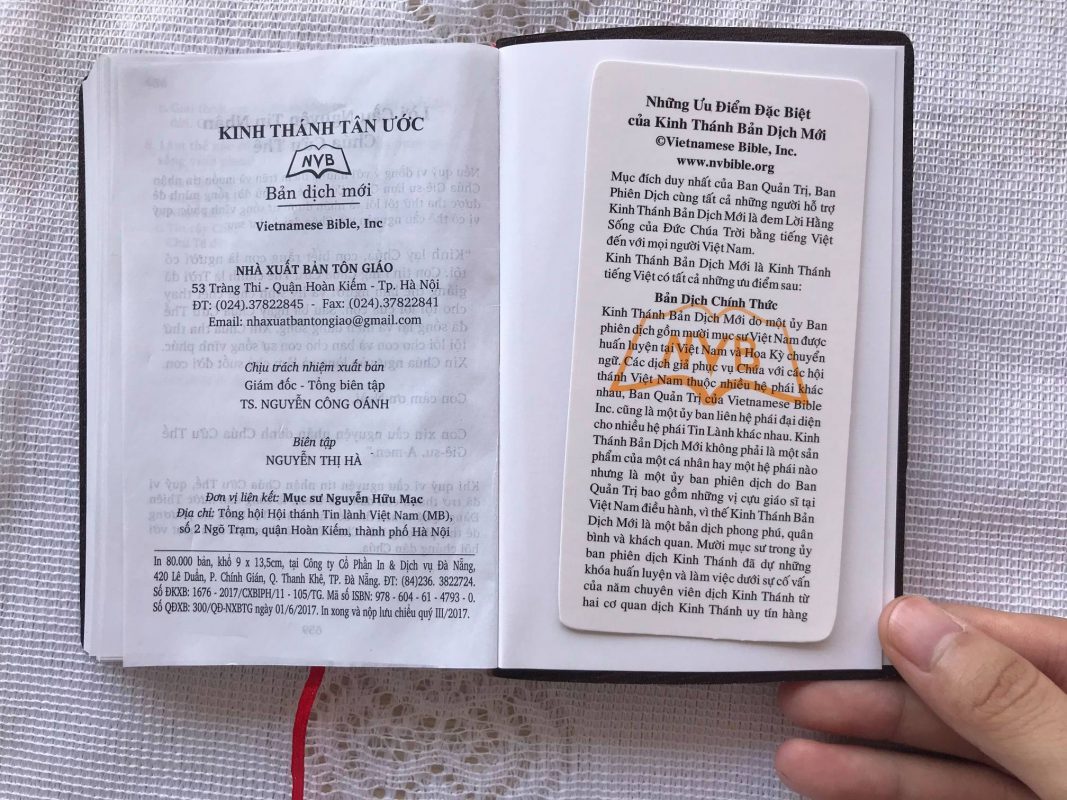 KINH THÁNH TÂN ƯỚC
NVB
Bản dịch mới
Vietnamese Bible, Inc
NHÀ XUẤT BẢN TÔN GIÁO
53 Tràng Thi - Quận Hoàn Kiếm - Tp. Hà Nội
ĐT: (024).37822845 - Fax: (024).37822841
Email: nhaxuatbantongiao@gmail.com
Chịu trách nhiệm xuất bản
Giám đốc - Tổng biên tập
TS. NGUYỄN CÔNG OÁNH
Biên tập
NGUYỄN THỊ HÀ
Đơn vị liên kết: Mục sư Nguyễn Hữu Mạc
Địa chỉ: Tổng hội Hội thánh Tin lành Việt Nam (MB),
số 2 Ngõ Trạm, quận Hoàn Kiếm, thành phố Hà Nội
In 80.000 bản, khổ 9 x 13,5cm, tại Công ty Cổ Phần In & Dịch vụ Đà Nẵng,
420 Lê Duẩn, P. Chính Gián, Q. Thanh Khê, TP. Đà Nẵng. ĐT: (84)236. 3822724.
Số ĐKXB: 1676 - 2017/CXBIPH/11 - 105/TG. Mã số ISBN: 978 - 604 - 61 - 4793 - 0.
Số QĐXB: 300/QĐ-NXBTG ngày 01/6/2017. In xong và nộp lưu chiểu quý III/2017.
Những Ưu Điểm Đặc Biệt
của Kinh Thánh Bản Dịch Mới
©Vietnamese Bible, Inc.
www.nvbible.org
Mục đích duy nhất của Ban Quản Trị, Ban
Phiên Dịch cùng tất cả những người hỗ trợ
Kinh Thánh Bản Dịch Mới là đem Lời Hằng
Sống của Đức Chúa Trời bằng tiếng Việt
đến với mọi người Việt Nam.
Kinh Thánh Bản Dịch Mới là Kinh Thánh
tiếng Việt có tất cả những ưu điểm sau:
Bản Dịch Chính Thức
Kinh Thánh Bản Dịch Mới do một ủy Ban
phiên dịch gồm mười mục sư Việt Nam được
huấn luyện tại Việt Nam và Hoa Kỳ chuyển
ngữ. Các dịch giả phục vụ Chúa với các hội
thánh Việt Nam thuộc nhiều hệ phái khác
nhau, Ban Quản Trị của Vietnamese Bible
Inc. cũng là một ủy ban liên hệ phái đại diện
cho nhiều hệ phái Tin Lành khác nhau. Kinh
Thánh Bản Dịch Mới không phải là một sản
phẩm của một cá nhân hay một hệ phái nào
nhưng là một ủy ban phiên dịch do Ban
Quản Trị bao gồm những vị cựu giáo sĩ tại
Việt Nam điều hành, vì thế Kinh Thánh Bản
Dịch Mới là một bản dịch phong phú, quân
bình và khách quan. Mười mục sư trong ủy
ban phiên dịch Kinh Thánh đã dự những
khóa huấn luyện và làm việc dưới sự cố vấn
của năm chuyên viên dịch Kinh Thánh từ
hai cơ quan dịch Kinh Thánh uy tín hàng
NVB